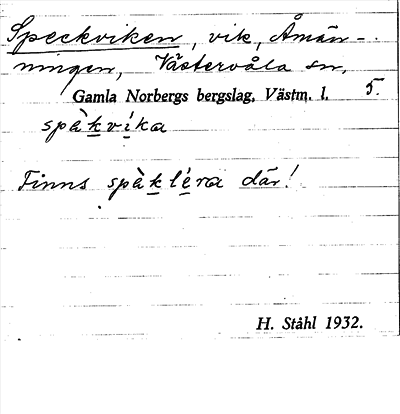 Speckviken, vik, Åmän-
ningen, Västervåla sn,
Gamla Norbergs bergslag, Västm. l. 5.
spàkvíka
Finns spàkléra där!
H. Ståhl 1932.